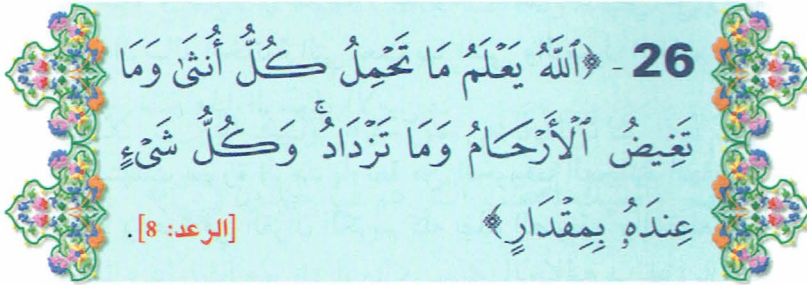 26 - ﴿ٱللَّهُ يَعْلَمُ مَا تَحْمِلُ كُلُّ أُنثَىٰ وَمَا
تَغِيضُ ٱلْأَرْحَامُ وَمَا تَزْدَادُ ۚ وَكُلُّ شَىْءٍ
عِندَهُۥ بِمِقْدَارٍ﴾ [الرعد: 8].